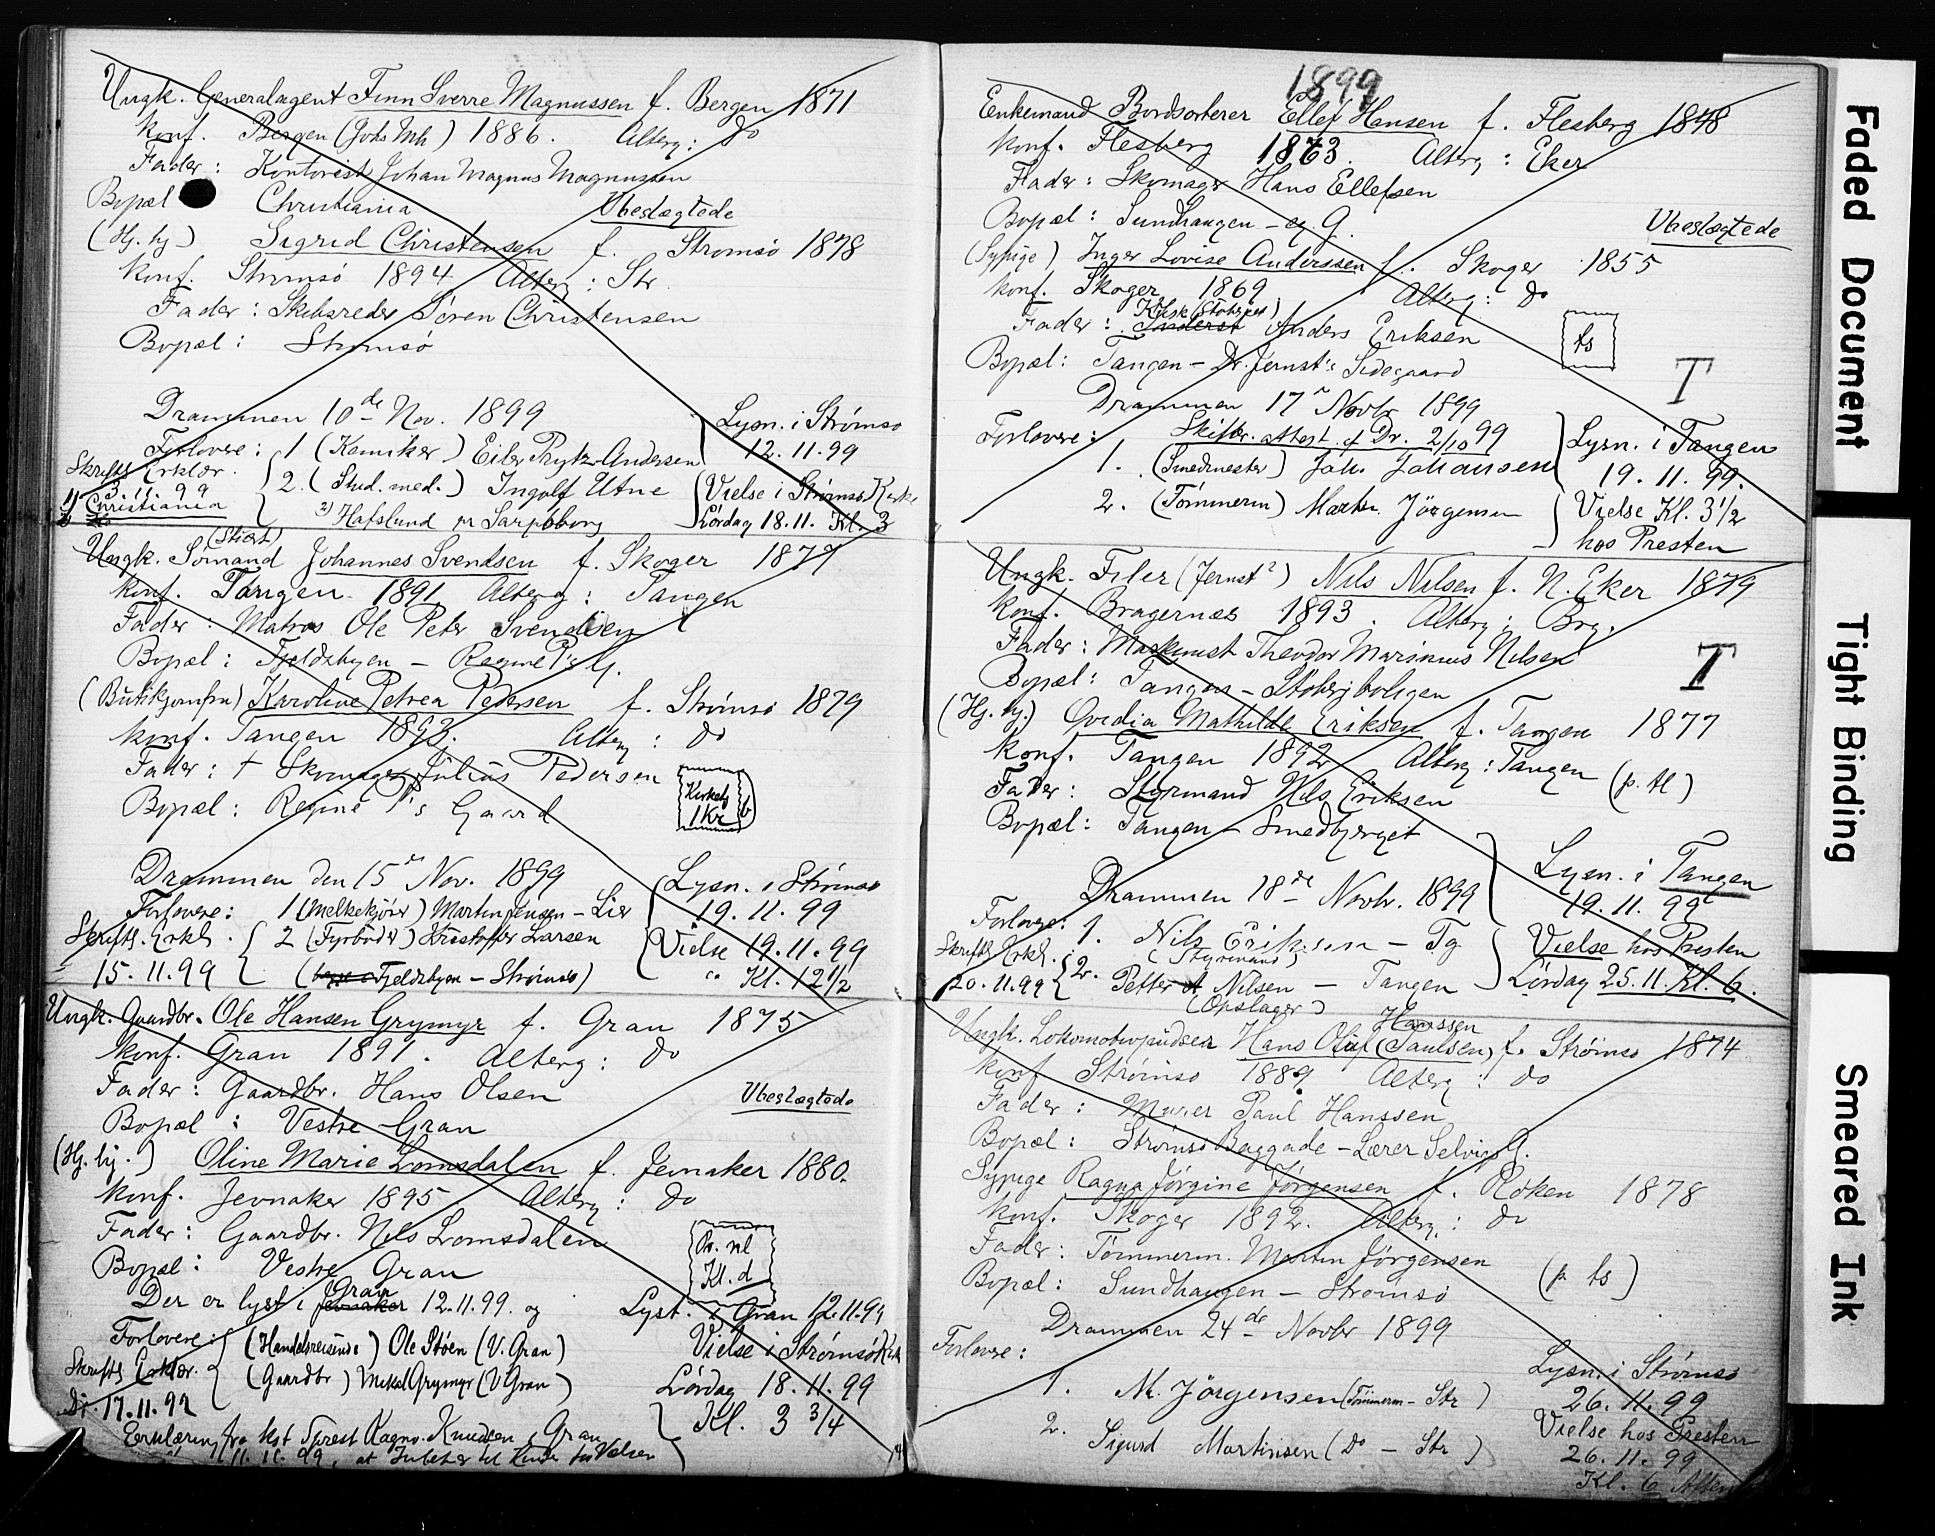 Ungk. Generalagent Finn Sverre Magnussen f. Bergen 1871
Konf. Bergen (Johs Mh) 1886. Alterg: do
Fader: Kontorist Johan Magnus Magnussen
Bopæl Christiania Ubeslægtede
(Hj. hj) Sigrid Christensen f. Strømsø 1878
Konf. Strømsø 1894 Alterg: Str
Fader: Skibsreder Søren Christensen
Bopæl: Strømsø
Drammen 10de Nov. 1899
Lysn. i Strømsø
12.11.99
Forlovere: 1 (Kemiker) Eiler Prytz Andersen
Skriftl. Erklær. 2. (Stud. med.) Ingolf Utne
Vielse i Strømsø Kirke
3.11.99
1) Christiania
2) Hafslund pr Sarpsborg
Lørdag 18.11. Kl. 3
Ungk. Sømand Johannes Svendsen f. Skoger 1877
Konf. Tangen 1891 Alterg: Tangen
Fader: Matros Ole Peter Svendsen
Bopæl: Fjeldsbyen – Regine P's G.
(Butikjomfru) Karoline Petrea Pedersen f. Strømsø 1879
Konf. Tangen 1893. Alterg: do
Fader: † Skomager Julius Pedersen
Bopæl: Regine P's Gaard
Kirkelg
1 Kr
b
Drammen den 15de Nov. 1899
Lysn. i Strømsø
19.11.99
Forlovere: 1 (Melkekjører) Martin Jensen – Lier
Skriftl. Erkl. 2 (Fyrbøder) Kristoffer Larsen
Vielse 19.11.99
15.11.99 (Fjeldsbyen – Strømsø)
" Kl. 12 1/2
Ungk. Gaardbr. Ole Hansen Grymyr f. Gran 1875
Konf. Gran 1891. Alterg: do
Fader: Gaardbr. Hans Olsen
Bopæl: Vestre Gran
Ubeslægtede
(Hj. hj.) Oline Marie Lomsdalen f. Jevnaker 1880.
Konf. Jevnaker 1895 Alterg: do
Fader: Gaardbr. Nils Lomsdalen
Bopæl: Vestre Gran
Kl. d
Gran
Der er lyst i Jevnaker 12.11.99. og
Lyst. i Gran 12.11.99
Forlovere: (Handelsreisende) Ole Støen (V. Gran)
Vielse i Strømsø Kirk
Skriftl. Erklær. (Gaardbr) Mikal Grymyr (V. Gran)
Lørdag 18.11.99
Dr. 17.11.99
Kl. 3 3/4
Erklæring fra kst Sprest Ragnv. Knudsen, Gran
11.11.99, at Intet er til Hinder for Vielsen
1899
Enkemand Bordsorterer Ellef Hansen f. Flesberg 1848
Konf. Flesberg 1863. Alterg: Eker
Fader: Skomager Hans Ellefsen
Bopæl: Sundhaugen – eg. G.
Ubeslægtede
(Sypige) Inger Lovise Anderssen f. Skoger 1855
Konf. Skoger 1869 Alterg: do
Fader: Anders Eriksen
ts
Bopæl: Tangen – Dr. Jernst's Sidegaard
T
Drammen 17de Novbr 1899
Forlovere: Skifte. attest af Dr. 2/10 99
Lysn. i Tangen
1. (Smedmester) Joh. Johansen
19.11.99.
2. (Tømmerm) Martin Jörgensen
Vielse Kl. 3 1/2
hos Presten
Ungk. Filer (Jernst) Nils Nilsen f. N. Eker 1879
Konf. Bragernes 1893. Alterg: Brg.
Fader: Maskinist Theodor Marinius Nilsen
T
Bopæl: Tangen – Støberiboligen
(Hj. hj.) Ovedia Mathilde Eriksen f. Tangen 1877
Konf. Tangen 1892 Alterg: Tangen
Fader: Styrmand Nils Eriksen
(p. tl)
Bopæl: Tangen – Smedbjerget
Drammen 18de Novbr. 1899
Lysn. i Tangen
19.11.99
Forlovere: 1. Nils Eriksen – Tg
(Styrmand)
Vielse hos Presten
Skriftl. Erkl. 2. Petter Nilsen – Tangen
20.11.99 (Opslager)
Lørdag 25.11. Kl. 6.
Hanssen
Ungk. Lokomotivpudser Hans Olaf (Paulsen) f. Strømsø 1874
Konf Strømsø 1889 Alterg: do
Fader: Murer Paul Hanssen
Bopæl: Strømsø Baggade – Lærer Selvigs G.
Sypige Ragna Jørgine Jørgensen f. Røken 1878
Konf. Skoger 1892. Alterg: do
Fader: Tømmerm. Martin Jørgensen
Bopæl: Sundhaugen – Strømsø
(p ts)
Drammen 24de Novbr 1899
Forlovere:
Lysn. i Strømsø
1. M. Jörgensen (Tömmerm – Str)
26.11.99
2. Sigurd Martinsen (do – Str)
Vielse hos Presten
26.11.99
Kl. 6 Aften
Faded Document
Tight Binding
Smeared Ink